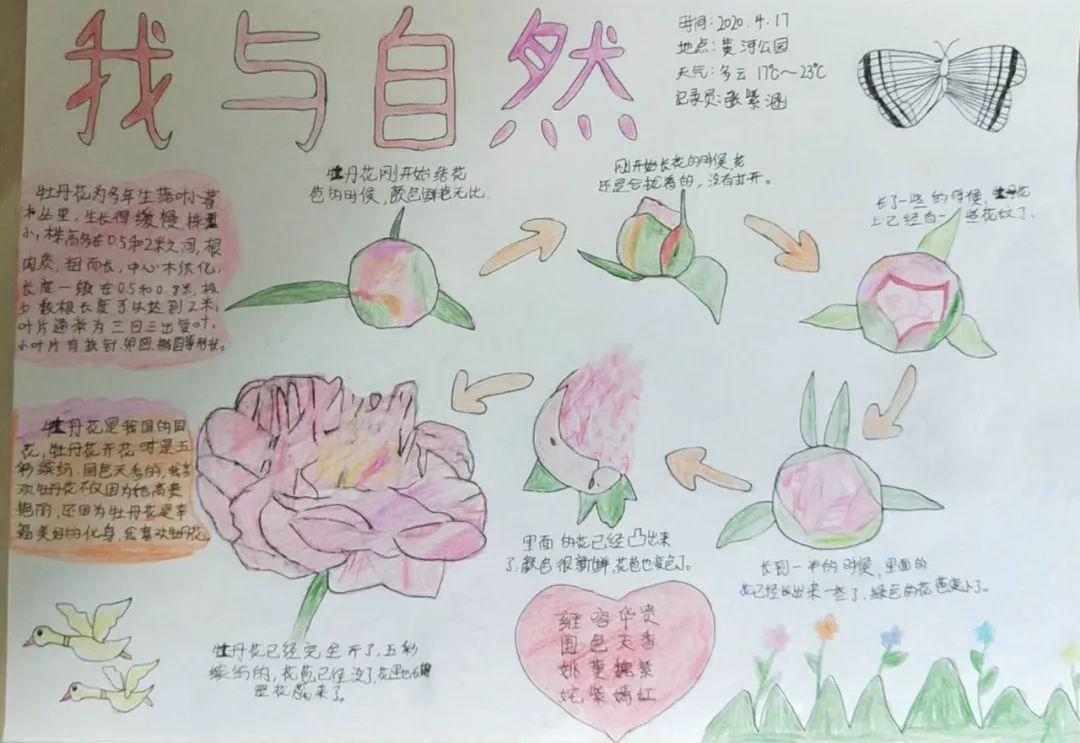 我与自然
时间:2020.4.17
地点:黄河公园
天气:多云 17℃~23℃
记录员:张紫涵
牡丹花刚开始结花
苞的时候,颜色鲜艳无比.
刚开始长花的时候,花
还是会拢着的,没有打开。
长了一些的时候,牡丹花
上已经有一些花纹了.
牡丹花为多年生落叶小灌
木丛里,生长得缓慢,株型
小,株高多在0.5和2米之间,根
肉质,粗而长,中心木质化,
长度一般在0.5和0.8米,极
少数根长度可以达到2米,
叶片通常为三回三出复叶,
小叶片有披针、卵圆、椭圆等形状。
牡丹花是我国的国
花,牡丹花开花时是五
彩缤纷.国色天香的,我喜
欢牡丹花不仅因为她高贵
艳丽,还因为牡丹花是幸
福美好的化身,我喜欢牡丹花.
里面的花已经凸出来
了,颜色很新鲜,花苞也变色了。
长到一半的时候,里面的
花已经长出来一些了,绿色的花苞变小了。
牡丹花已经完全开了,五彩
缤纷的,花苞已经没了,花
里花来了。
雍容华贵
国色天香
姚黄魏紫
姹紫嫣红